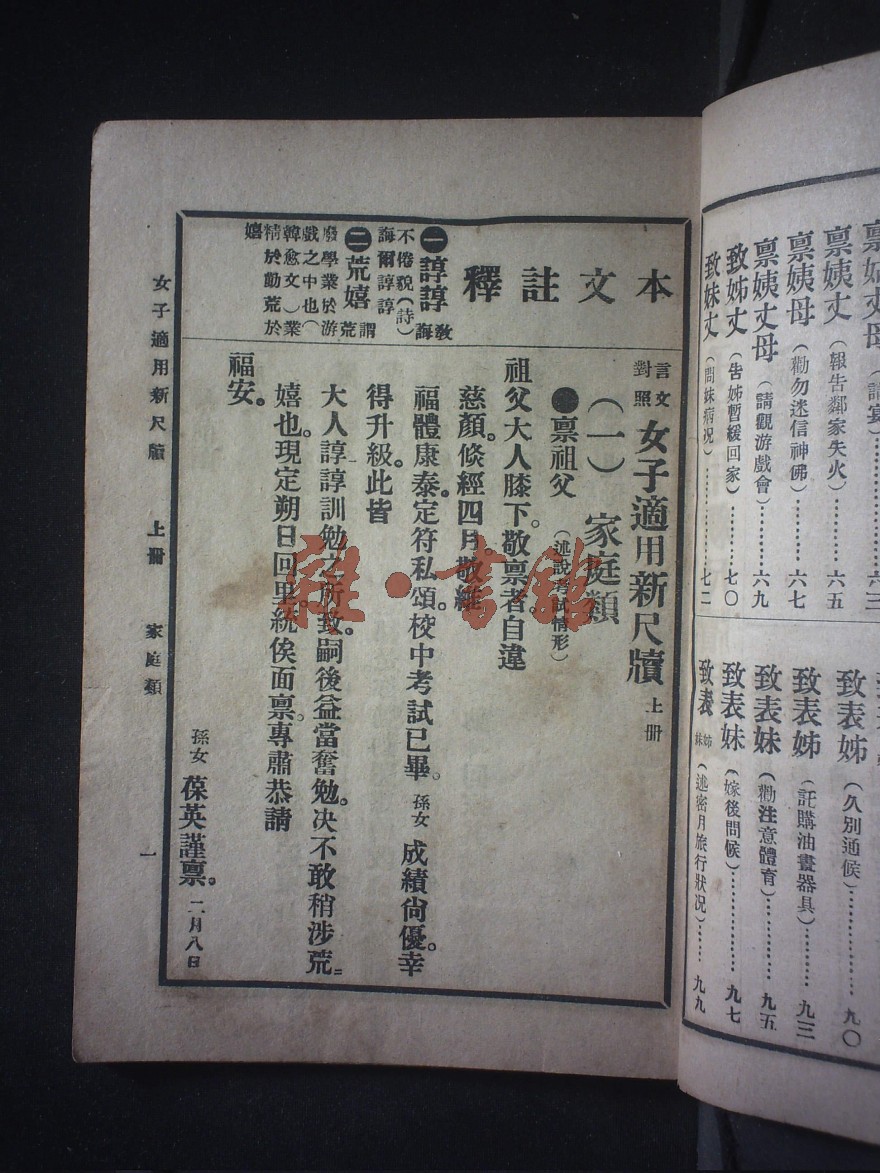 稟姨丈（報告鄰家失火）………六五
稟姨母（勸勿迷信神佛）………六七
稟姨丈母（請觀游戲會）………六九
致姊丈（告姊暫緩回家）………七〇
致妹丈（問妹病况）………七二
致表姊（久別通候）………九〇
致表姊（託購油畫器具）………九三
致表妹（勸注意體育）………九五
致表妹（嫁後問候）………九七
致表姊妹（述密月旅行狀况）……九九
本文註釋
㊀諄諄 教誨
不倦貌（詩）
誨爾諄諄
㊁荒嬉 謂荒
廢學業於游
戲之中也（
韓愈文）業
精於勤荒於
嬉
言文對照 女子適用新尺牘 上册
（一）家庭類
●稟祖父（述說考試情形）
祖父大人膝下。敬稟者自違
慈顏。倏經四月。敬維
福體康泰。定符私頌。校中考試已畢。孫女成績尙優。幸
得升級。此皆
大人諄諄訓勉之所致。嗣後益當奮勉。决不敢稍涉荒
嬉也。現定朔日回里。統俟面稟。專肅恭請
福安。
孫女 葆英謹稟。二月八日
女子適用新尺牘 上册 家庭類 一
雜·書館